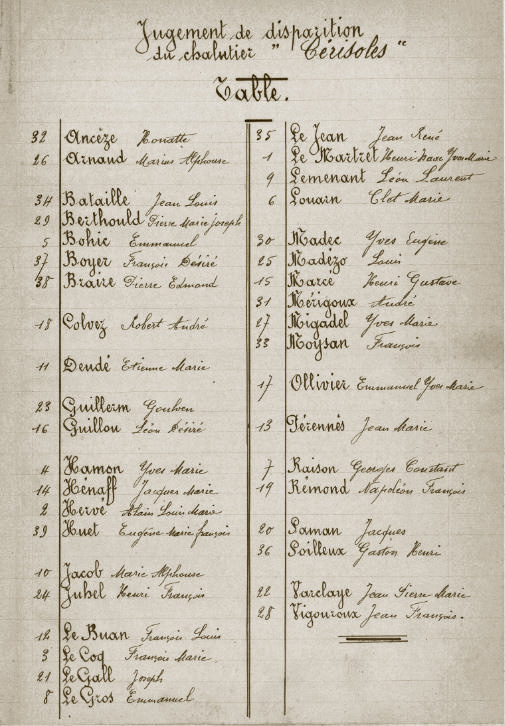 Jugement de disparition
du chalutier " Cérisoles "
Table.
32 Ancèze Honatte
26 Arnaud Marius Alphonse
34 Bataille Jean Louis
29 Berthould Pierre Marie Joseph
5 Bohic Emmanuel
37 Boyer François Désiré
38 Braire Pierre Edmond
18 Colvez Robert André
11 Deudé Etienne Marie
23 Guillerm Goulven
16 Guillou Léon Désiré
4 Hamon Yves Marie
14 Hénaff Jacques Marie
2 Hervé Alain Louis Marie
39 Huet Eugène Marie François
10 Jacob Marie Alphonse
24 Juhel Henri François
12 Le Buan François Louis
3 Le Coq François Marie.
21 Le Gall Joseph
8 Le Gros Emmanuel
35 Le Jean Jean René
1 Le Martret Henri Yves Marie
9 Lemenant Léon Laurent
6 Louarn Clet Marie
30 Madec Yves Eugène
25 Madézo Louis
15 Marcé Henri Gustave
31 Mérigoux André
27 Migadel Yves Marie
33 Moysan François
17 Ollivier Emmanuel Yves Marie
13 Pérennés Jean Marie
7 Raison Georges Constant
19 Rémond Napoléon François
20 Saman Jacques
36 Soilleux Gaston Henri
22 Varclaye Jean Pierre Marie
28 Vigouroux Jean François.